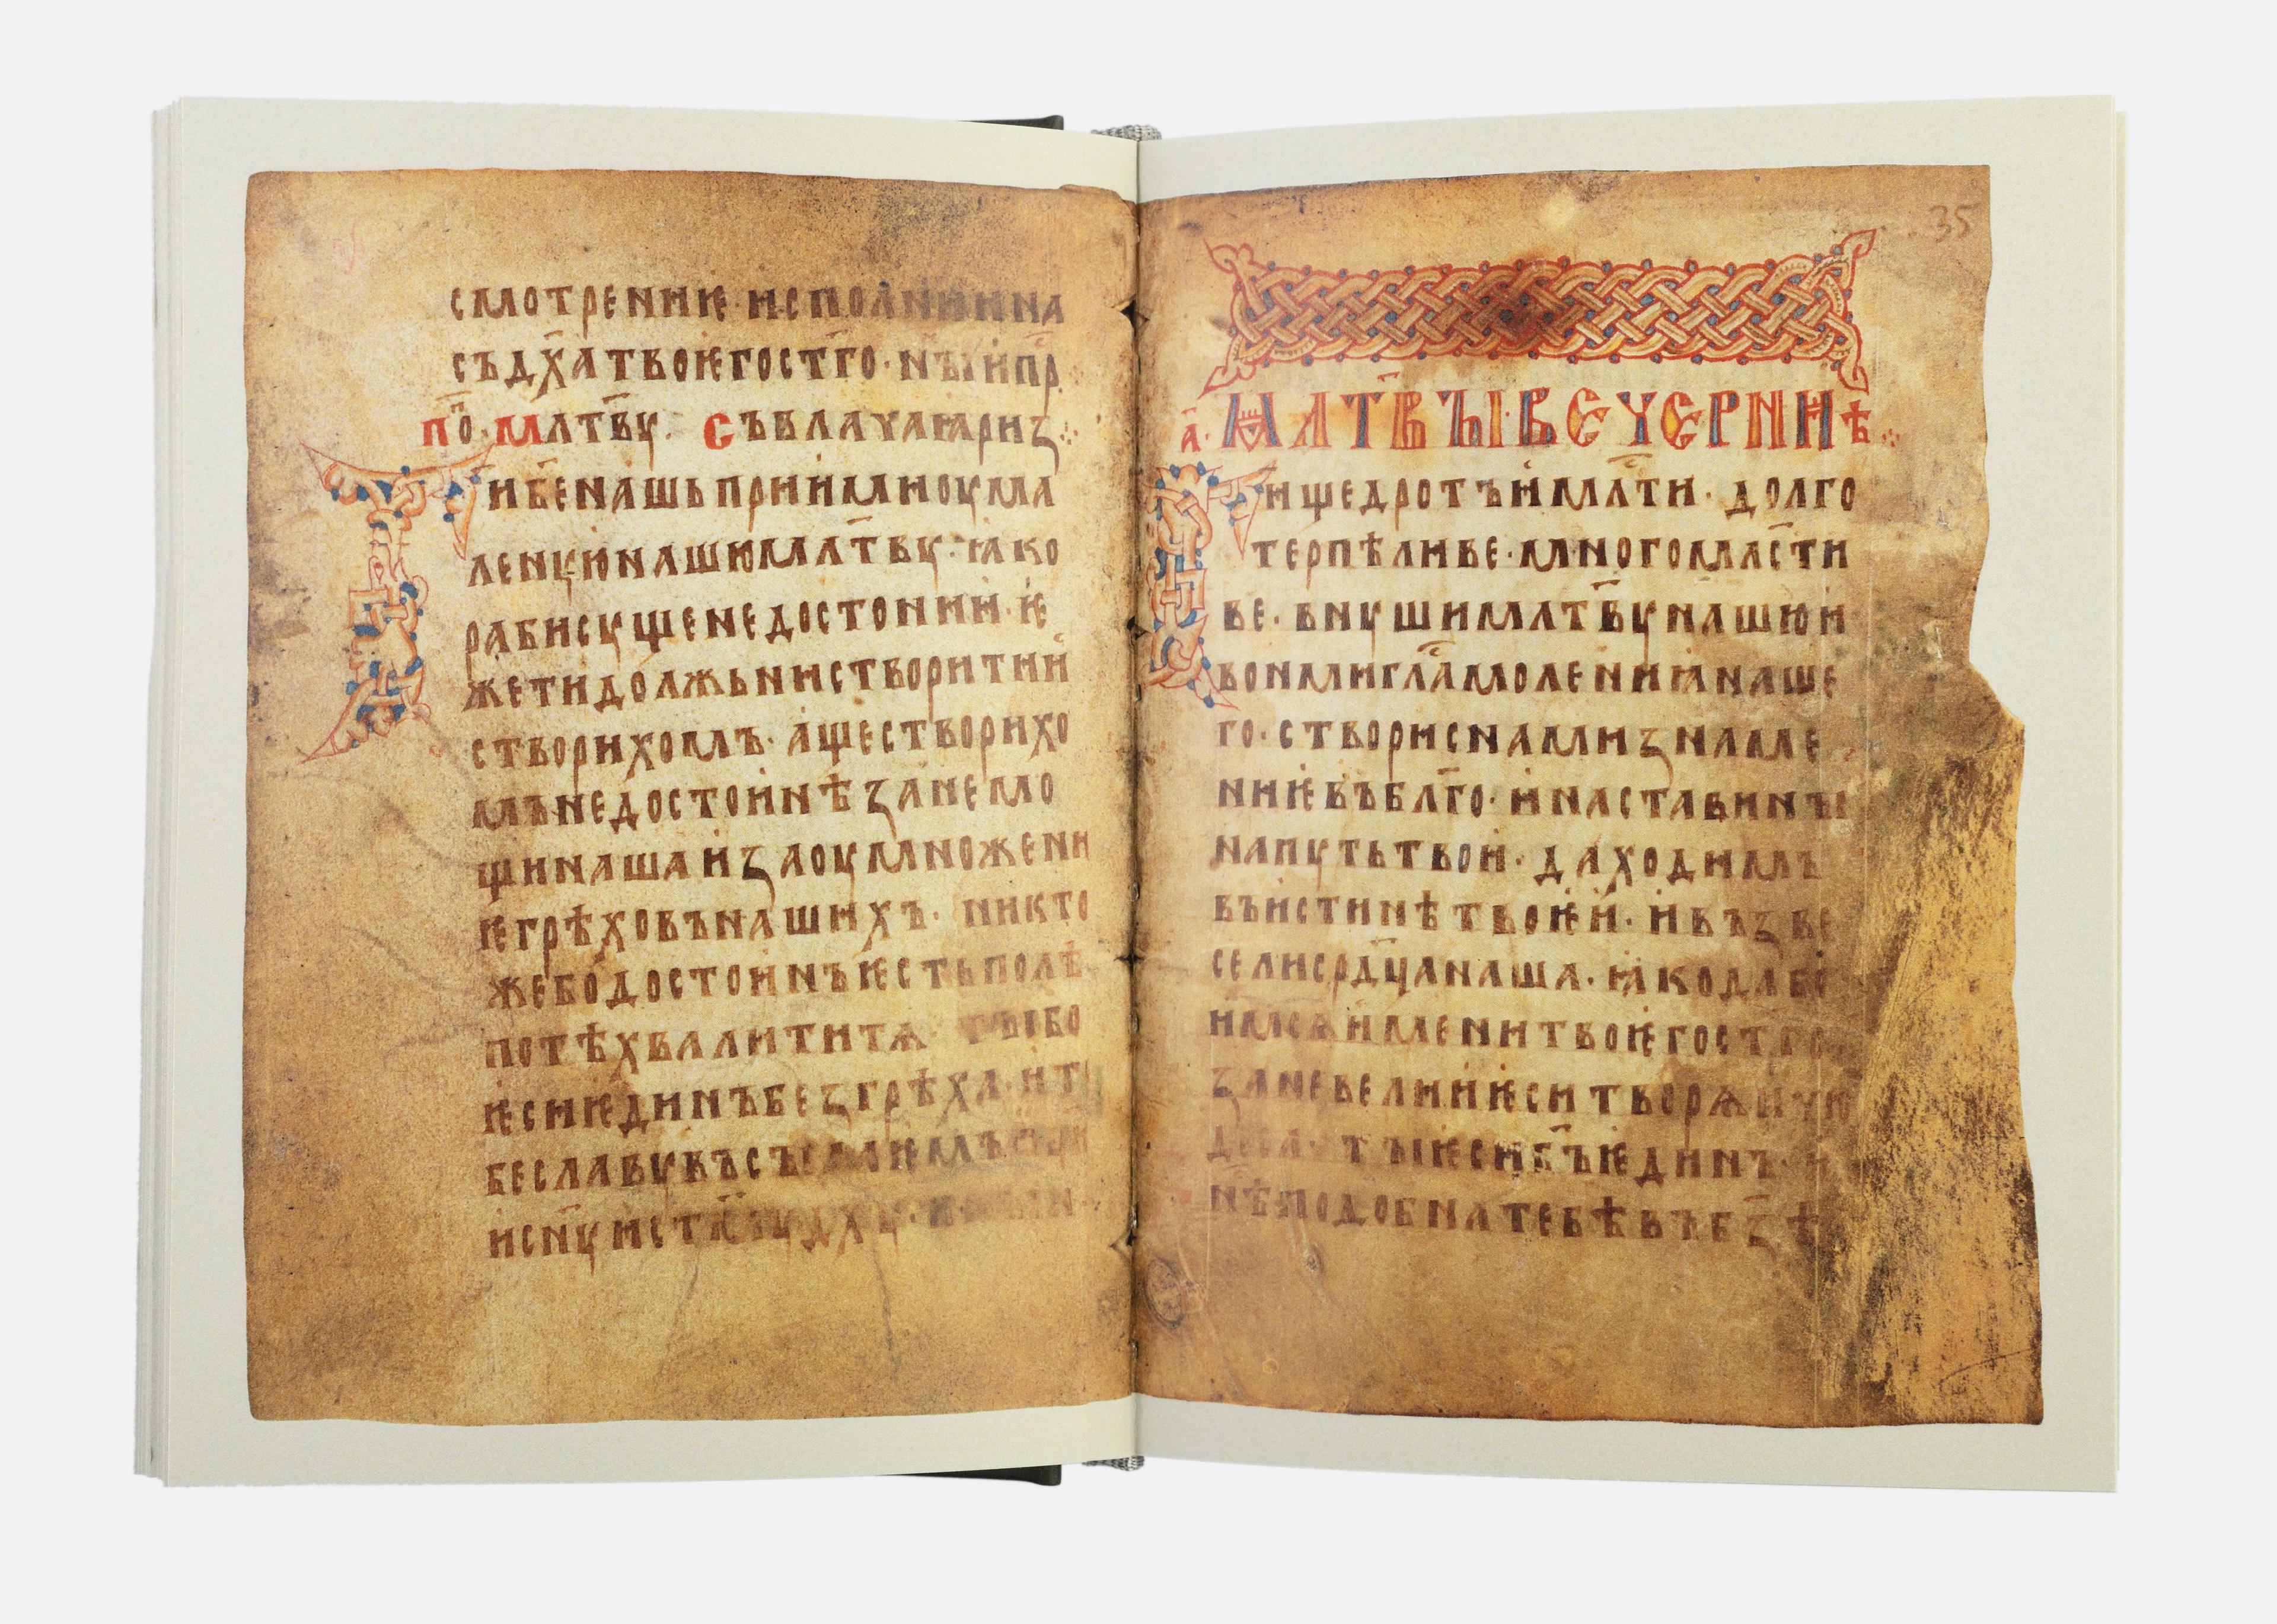 смотрениѥ·исполниина
съдх҃атвоѥгост҃го·нъ҃иипр
по҃·млтв҃у. съвлачаꙗриꙁ
Г҃иб҃енашьприимиоума
ленуюнашюмлт҃ву·ꙗко
рабисущенедостоинии·ѥ
жетидолжьнистворитии
створихомъ·аществорихо
мънедостоинѣꙁанемо
щинашаиꙁаоумножени
ѥгрѣховънашихъ· никто
жебодостоинъѥстьполѣ
потѣхвалититѧ· тыбо
ѥсиѥдинъбеꙁгрѣха·ит
беславувъсъ
исн҃уист҃му дх҃у·
35
а҃· Млт҃въı·вечернѣ
Г҃ищедротъимлт҃и· долго
терпѣливе·многомлс҃ти
ве·внушимлтв҃унашюи
вонмигл҃амолениꙗнаше
го·створиснамиꙁнаме
ниѥвъблг҃о·инаставинъı
напутьтвои·даходимъ
въистинѣтвоѥи·ивъꙁве
селисрдц҃анаша·ꙗкодабо
имсѧимени твоѥгост҃го
ꙁаневелииѥситворѧичю
деса·тъıѥсиб҃ъѥдинъ·и
нѣподобнатебѣвъбꙁ҃ѣ